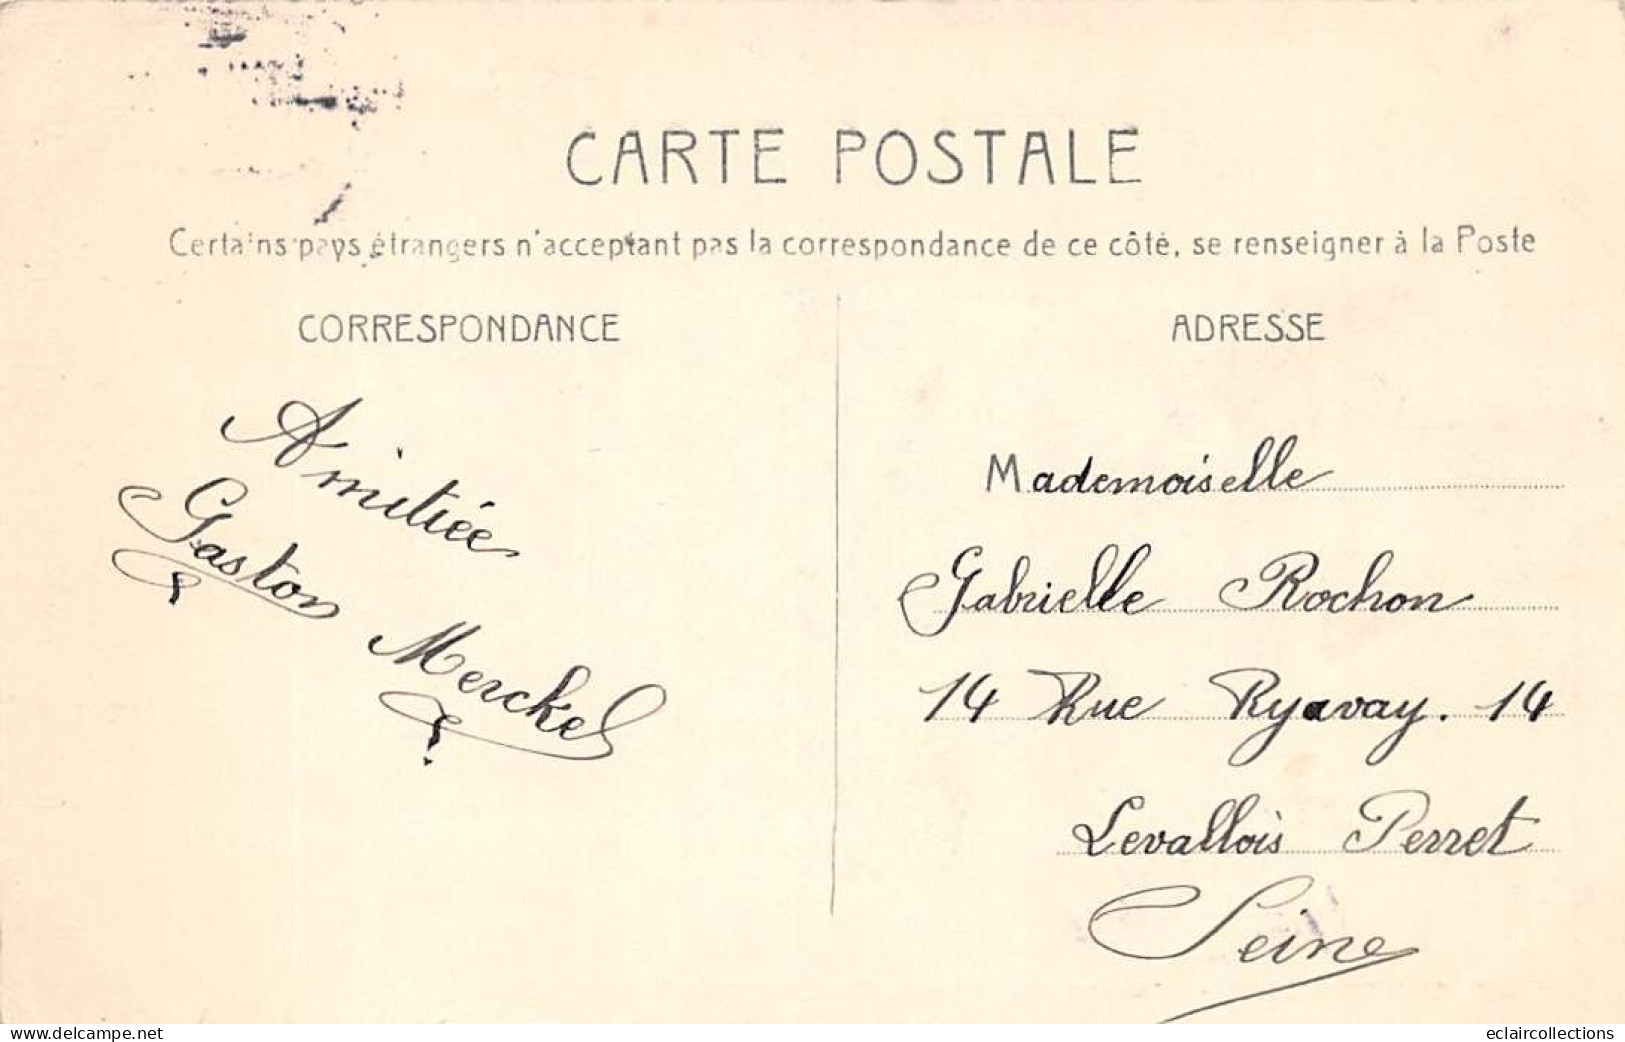 CARTE POSTALE
Certains pays étrangers n'acceptant pas la correspondance de ce côté, se renseigner à la Poste
CORRESPONDANCE
Amitiée
Gaston Merckel
ADRESSE
Mademoiselle
Gabrielle Rochon
14 Rue Ryavay. 14
Levallois Perret
Seine
www.delcampe.net
eclaircollections